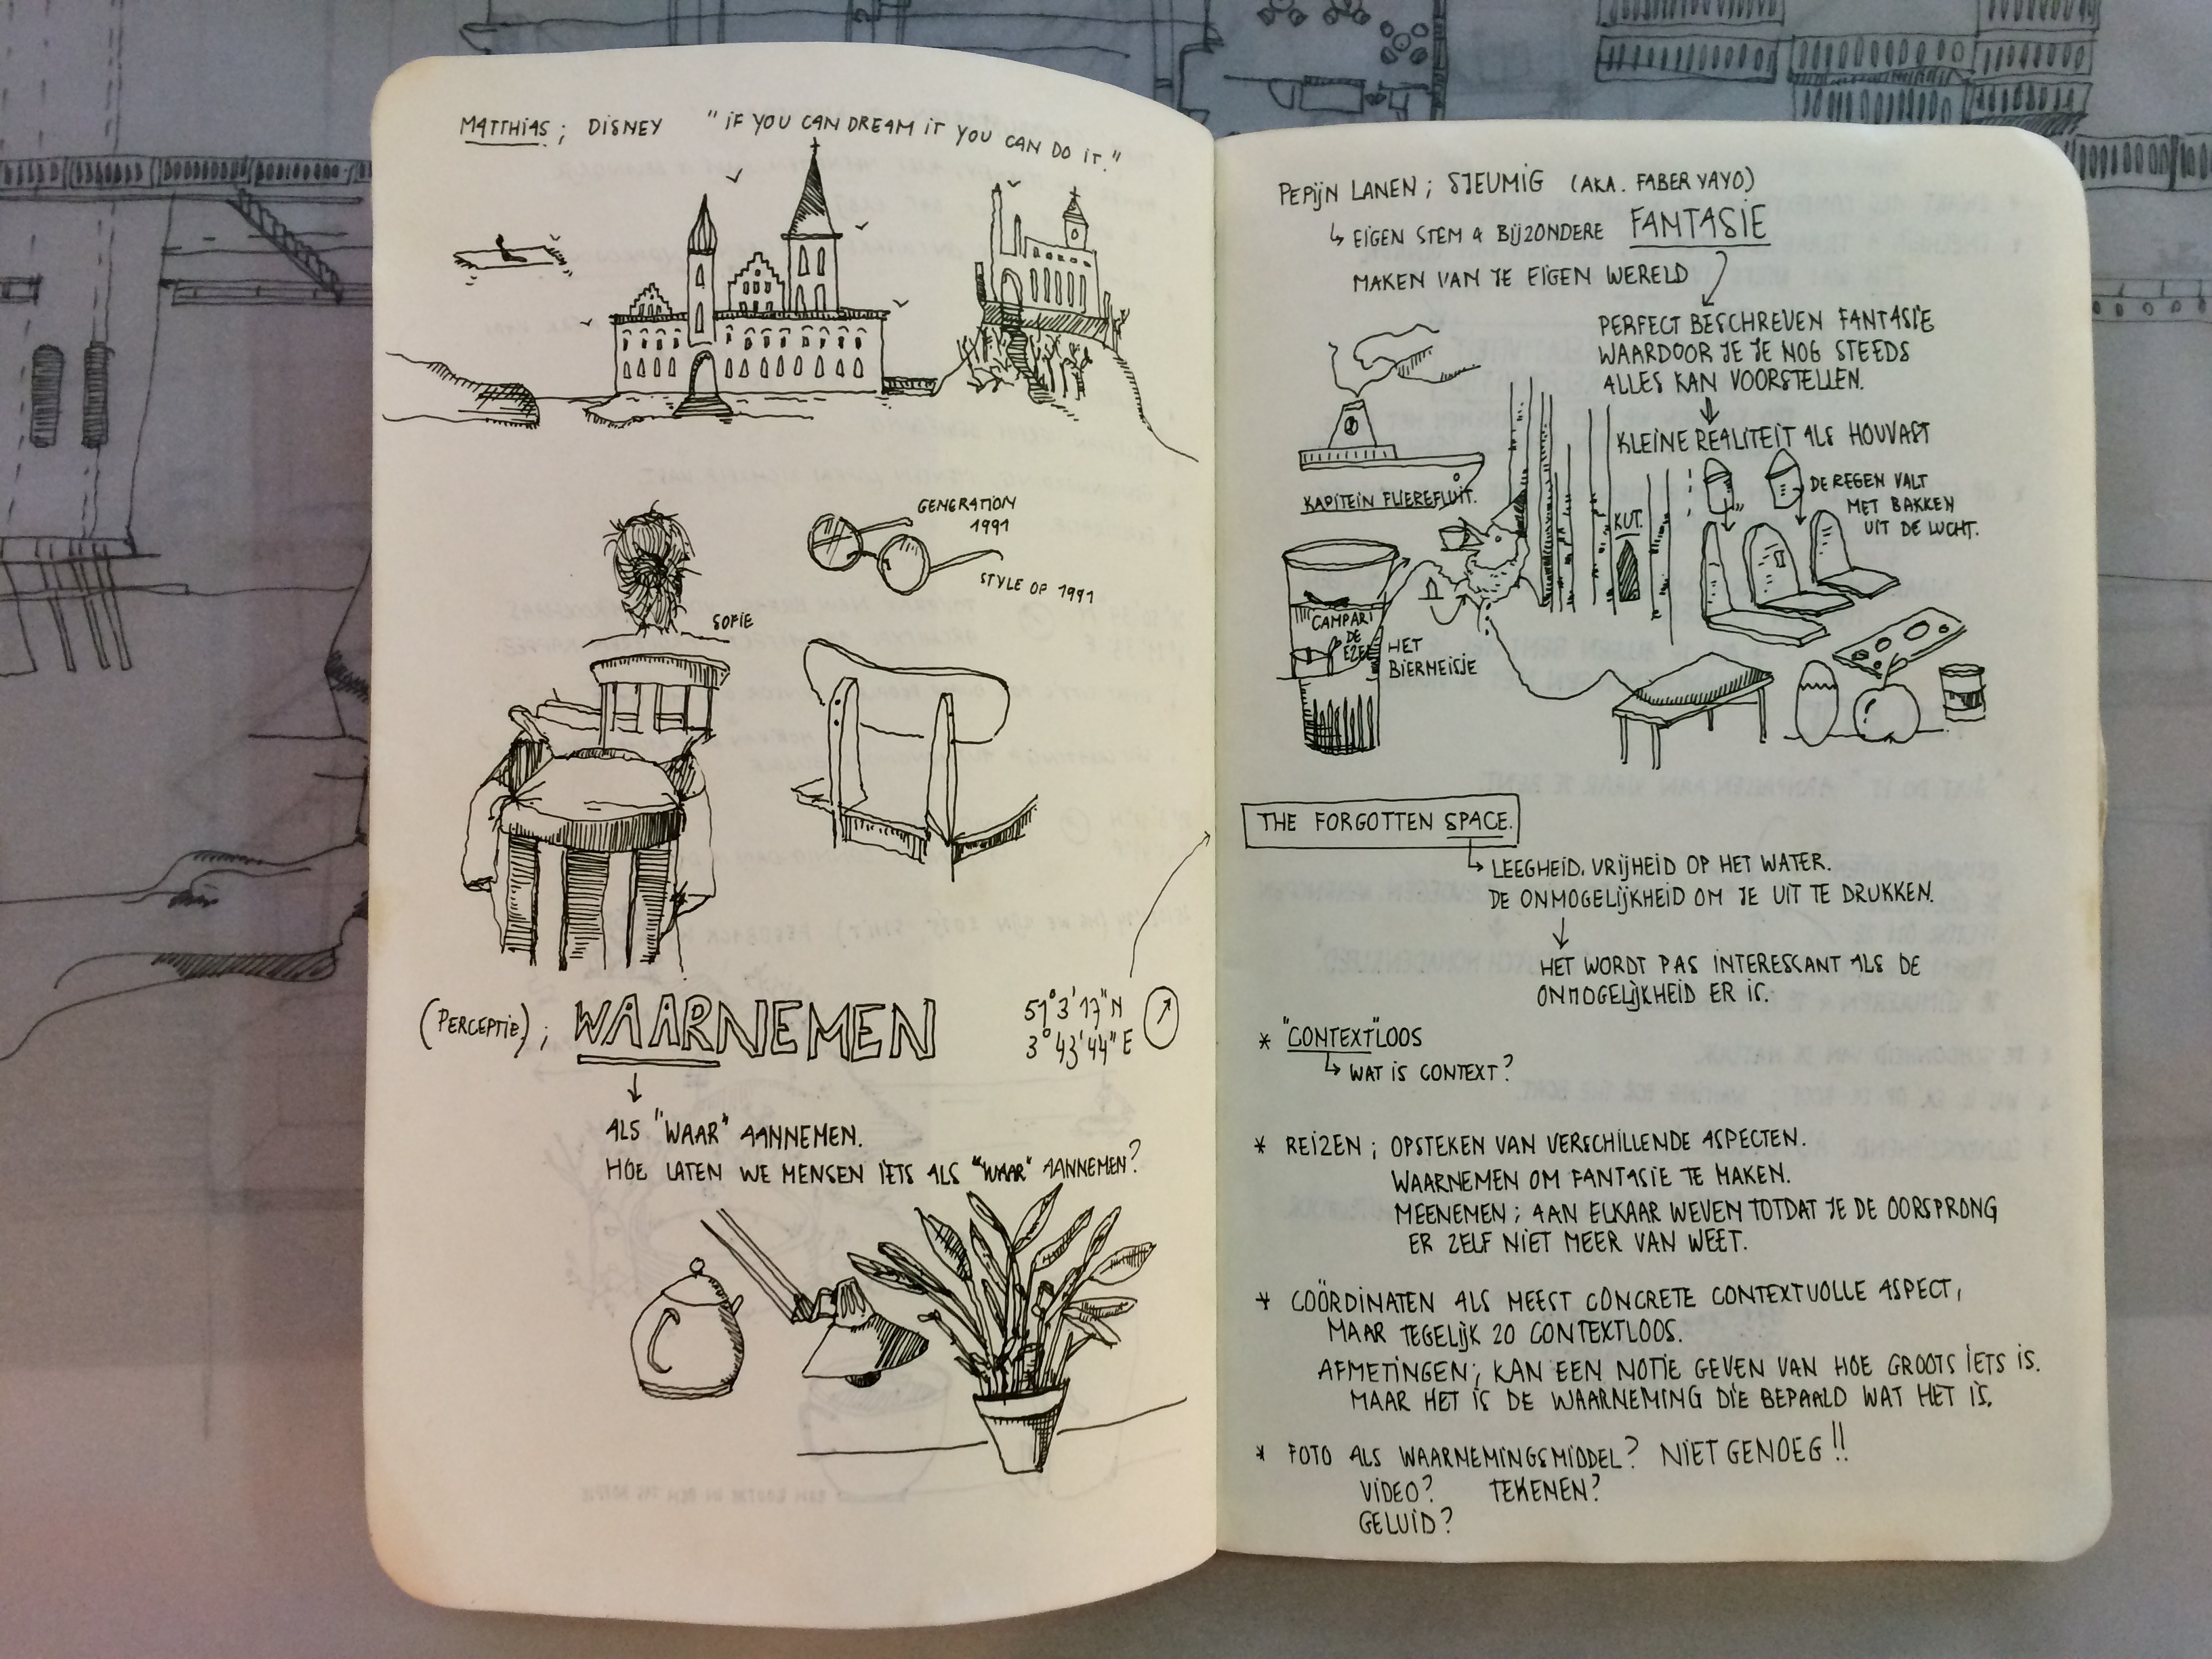 MATTHIAS; DISNEY "IF YOU CAN DREAM IT YOU CAN DO IT."
GENERATION
1991
STYLE OF 1991
SOFIE
(PERCEPTIE); WAARNEMEN
51° 3' 17" N
3° 43' 44" E
ALS "WAAR" AANNEMEN.
HOE LATEN WE MENSEN IETS ALS "WAAR" AANNEMEN?
PEPIJN LANEN; SJEUMIG (AKA. FABERYAYO)
EIGEN STEM & BIJZONDERE FANTASIE
MAKEN VAN JE EIGEN WERELD
PERFECT BESCHREVEN FANTASIE
WAARDOOR JE JE NOG STEEDS
ALLES KAN VOORSTELLEN.
KLEINE REALITEIT ALS HOUVAST
DE REGEN VALT
MET BAKKEN
UIT DE LUCHT.
KAPITEIN FLIEREFLUIT.
KUT.
CAMPARI
DE
EZEL
HET
BIERMEISJE
THE FORGOTTEN SPACE.
LEEGHEID. VRIJHEID OP HET WATER.
DE ONMOGELIJKHEID OM JE UIT TE DRUKKEN.
HET WORDT PAS INTERESSANT ALS DE
ONMOGELIJKHEID ER IS.
* "CONTEXT"LOOS
WAT IS CONTEXT?
* REIZEN; OPSTEKEN VAN VERSCHILLENDE ASPECTEN.
WAARNEMEN OM FANTASIE TE MAKEN.
MEENEMEN; AAN ELKAAR WEVEN TOTDAT JE DE OORSPRONG
ER ZELF NIET MEER VAN WEET.
* COÖRDINATEN ALS MEEST CONCRETE CONTEXTVOLLE ASPECT,
MAAR TEGELIJK ZO CONTEXTLOOS.
AFMETINGEN; KAN EEN NOTIE GEVEN VAN HOE GROOTS IETS IS.
MAAR HET IS DE WAARNEMING DIE BEPAALD WAT HET IS.
* FOTO ALS WAARNEMINGSMIDDEL? NIET GENOEG!!
VIDEO? TEKENEN?
GELUID?